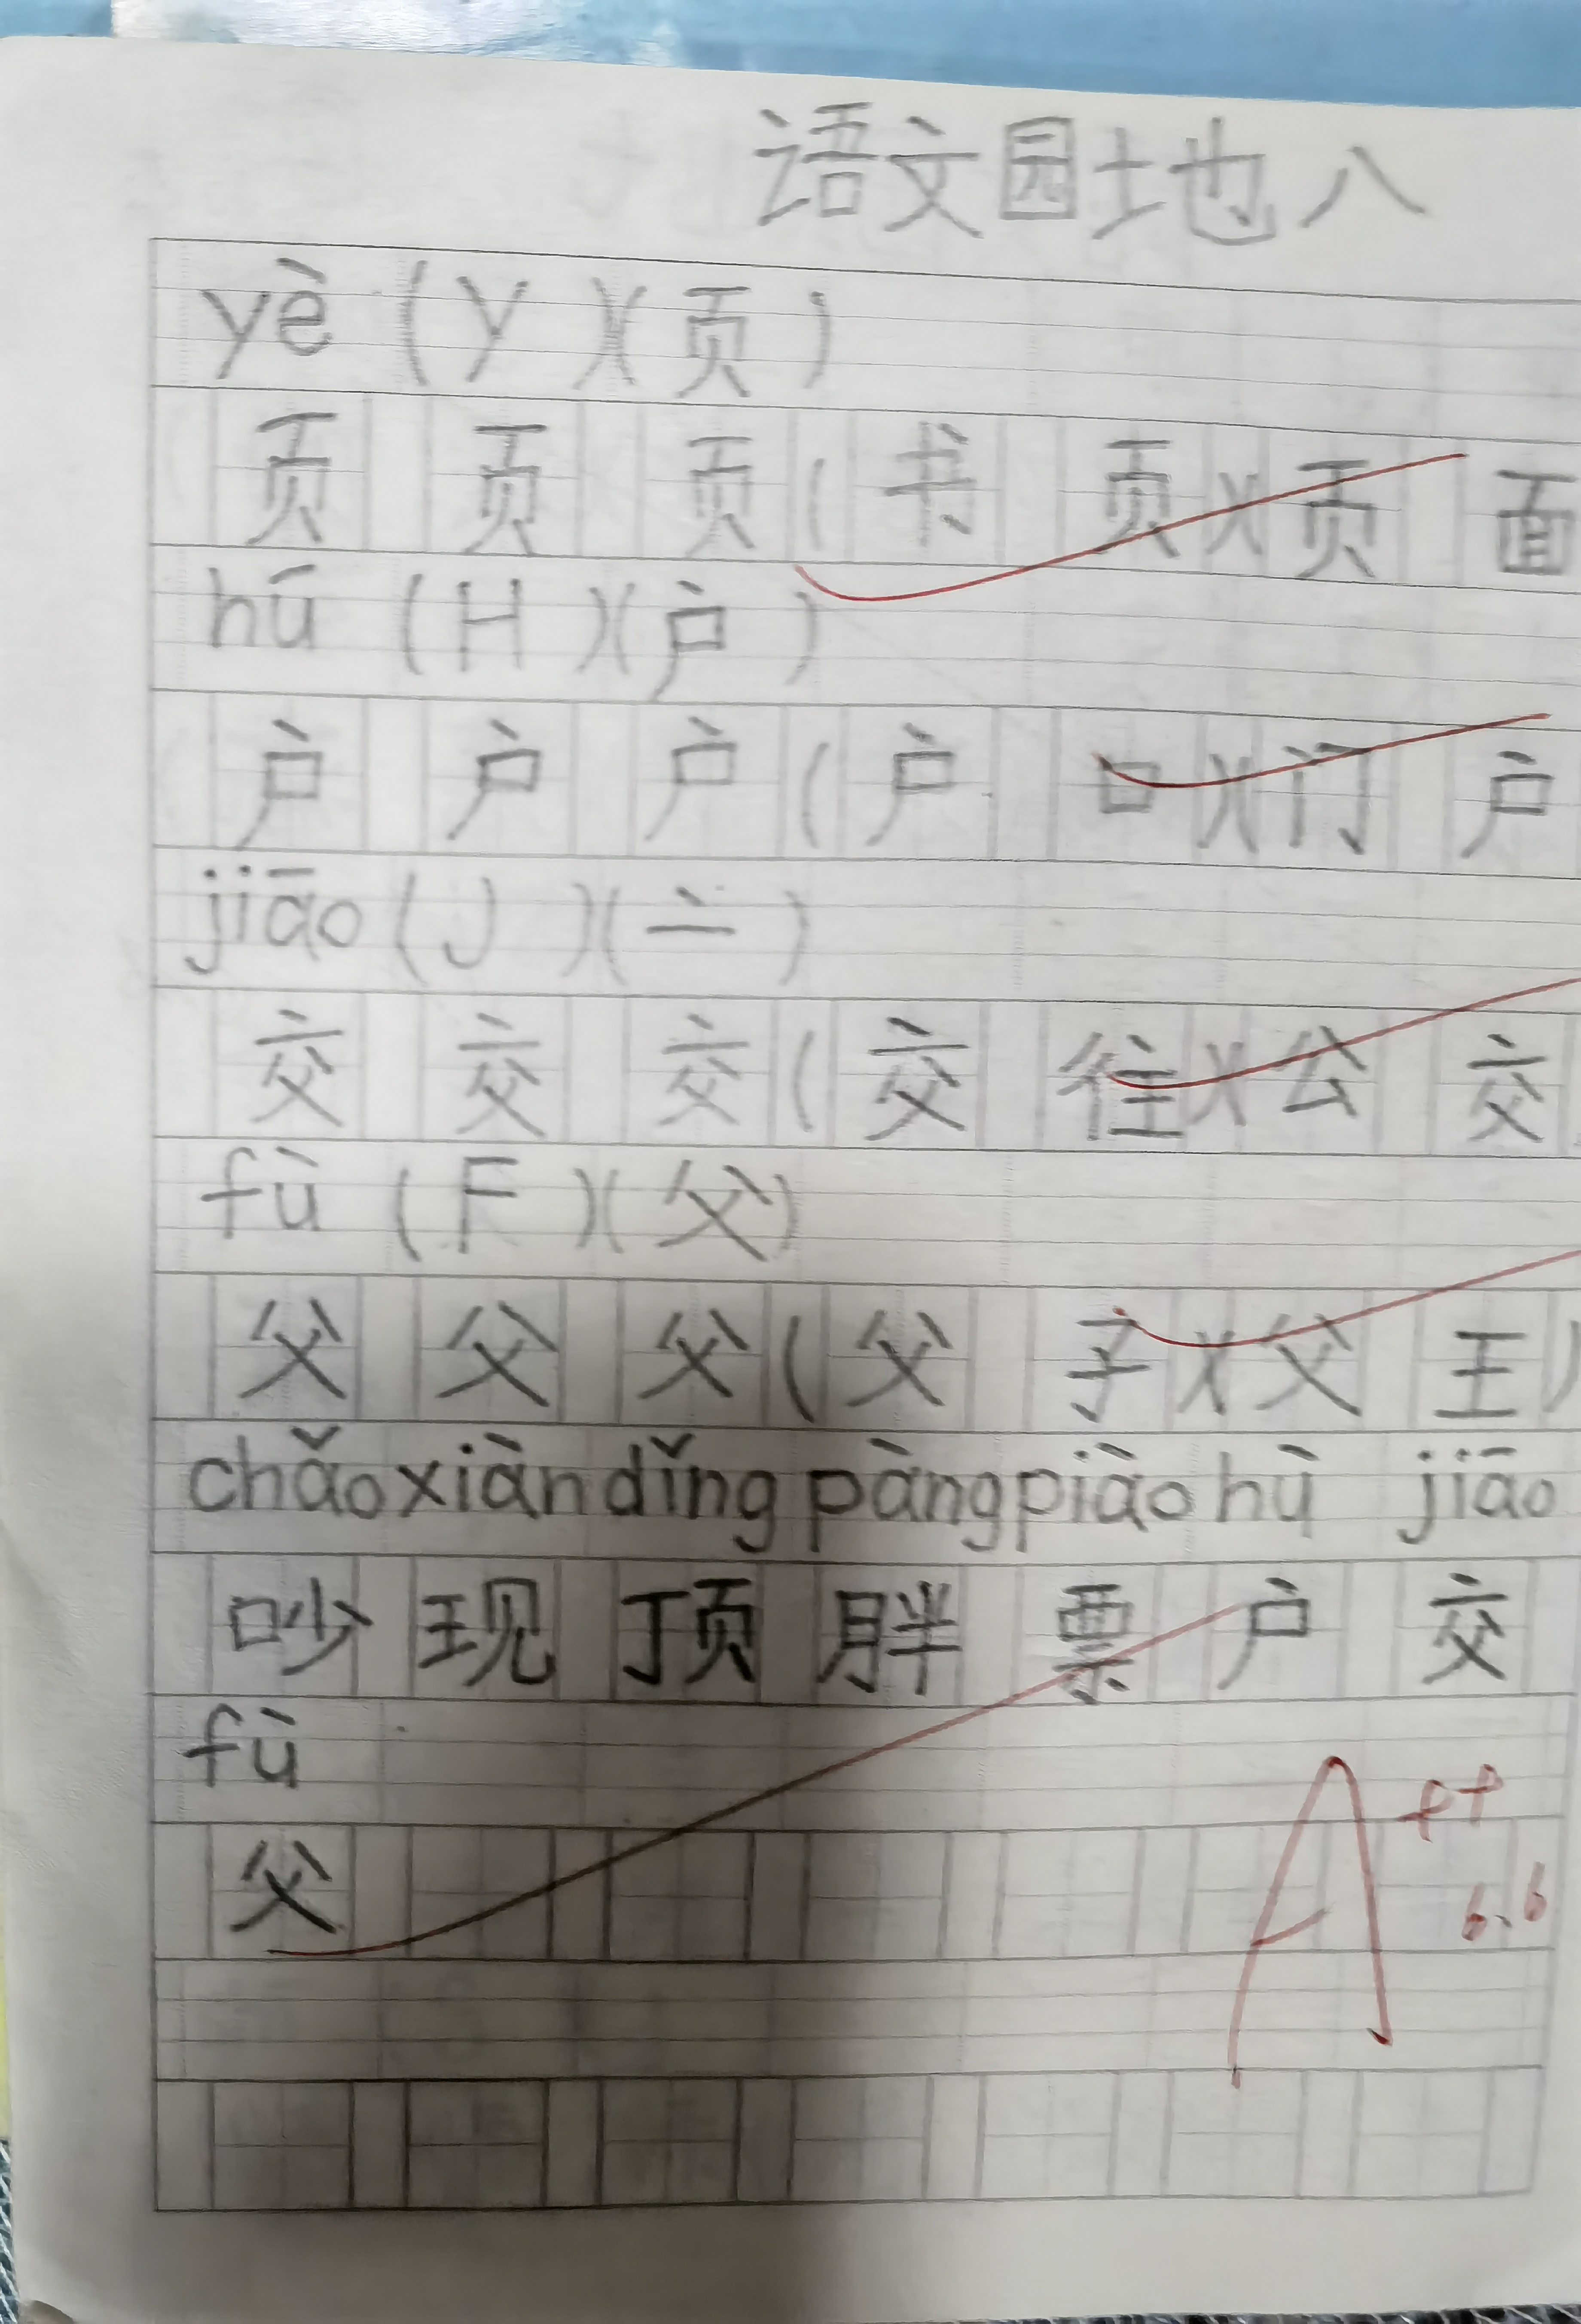 语文园地八
yè (Y)(页)
页 页 页 (书 页)(页 面
hū (H)(户)
户 户 户 (户 口)(门 户
jiāo (J)(亠)
交 交 交 (交 往)(公 交
fù (F)(父)
父 父 父 (父 子)(父 王)
chǎo xiàn dǐng pàng piào hù jiāo
吵 现 顶 胖 票 户 交
fù
父
A++
6.6